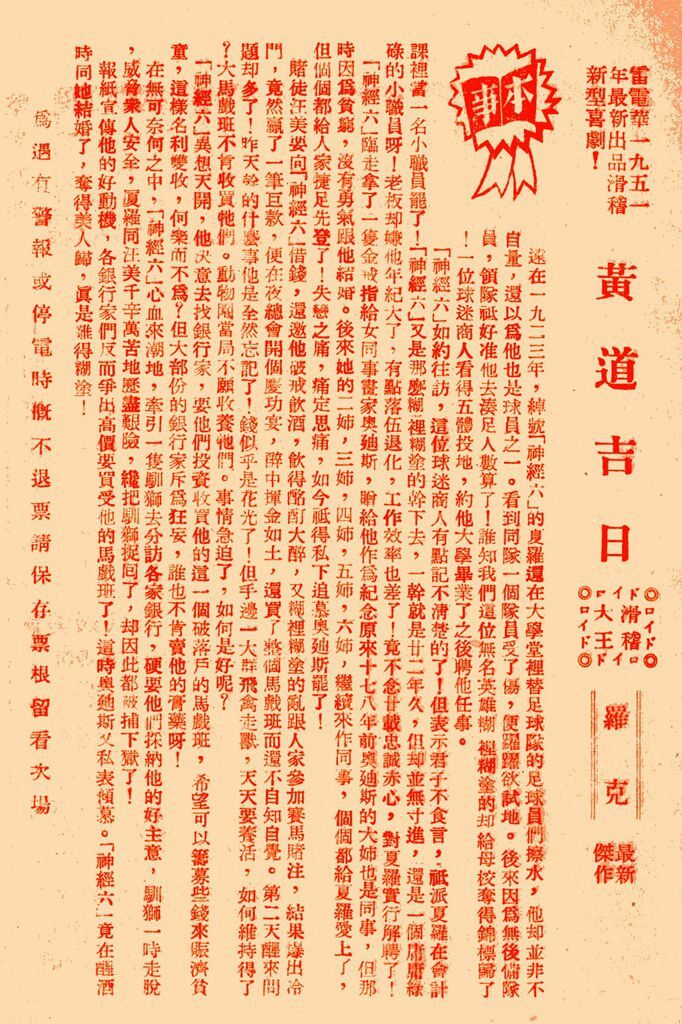 雷電華一九五一
年最新出品滑稽
新型喜劇！
黃道吉日
◎ロイド◎
滑稽
大王
◎ロイド◎
羅克
最新
傑作
本事
遠在一九二三年，綽號「神經六」的夏羅還在大學堂裡替足球隊的足球員們擦水，他却並非不
自量，還以爲他也是球員之一。看到同隊一個隊員受了傷，便躍躍欲試地。後來因爲無後備隊
員，領隊祗好准他去湊足人數算了！誰知我們這位無名英雄糊裡糊塗的却給母校奪得錦標歸了
！一位球迷商人看得五體投地，約他大學畢業了之後聘他任事。
「神經六」如約往訪，這位球迷商人有點記不清楚的了！但表示君子不食言，祗派夏羅在會計
課裡當一名小職員罷了！「神經六」又是那麼糊裡糊塗的幹下去，一幹就是廿二年久，但却並無寸進，還是一個庸庸綠
碌的小職員呀！老板却嫌他年紀大了，有點落伍退化，工作效率也差了！竟不念廿載忠誠赤心，對夏羅實行解聘了！
「神經六」臨走拿了一隻金戒指給女同事畫家奧廸斯，聊給他作爲紀念原來十七八年前奧廸斯的大姉也是同事，但那
時因爲貧窮，沒有勇氣跟他結婚。後來她的二姉，三姉，四姉，五姉，六姉，繼續來作同事，個個都給夏羅愛上了，
但個個都給人家捷足先登了！失戀之痛，痛定思痛，如今祗得私下追慕奧廸斯罷了！
賭徒汪美要向「神經六」借錢，還邀他破戒飲酒，飲得酩酊大醉，又糊裡糊塗的亂跟人家參加賽馬賭注，結果爆出冷
門，竟然贏了一筆巨款，便在夜總會開個慶功宴，醉中揮金如土，還買了整個馬戲班而還不自知自覺。第二天醒來問
題却多了！昨天幹的什麼事他是全然忘記了！錢似乎是花光了！但手邊一大群飛禽走獸，天天要養活，如何維持得了
？大馬戲班不肯收買牠們。動物園當局不願收養牠們。事情急迫了，如何是好呢？
「神經六」異想天開，他決意去找銀行家，要他們投資收買他的這一個破落戶的馬戲班，希望可以籌募些錢來賑濟貧
童，這樣名利雙收，何樂而不爲？但大部份的銀行家斥爲狂妄，誰也不肯賣他的膏藥呀！
在無可奈何之中，「神經六」心血來潮地，牽引一隻馴獅去分訪各家銀行，硬要他們採納他的好主意，馴獅一時走脫
，威脅衆人安全，夏羅同汪美千辛萬苦地歷盡艱險，纔把馴獅捉回了，却因此都被捕下獄了！
報紙宣傳他的好動機，各銀行家們反而爭出高價要買受他的馬戲班了！這時奧廸斯又私表傾慕。「神經六」竟在醒酒
時同她結婚了，奪得美人歸，眞是難得糊塗！
爲遇有警報或停電時槪不退票請保存票根留看次塲